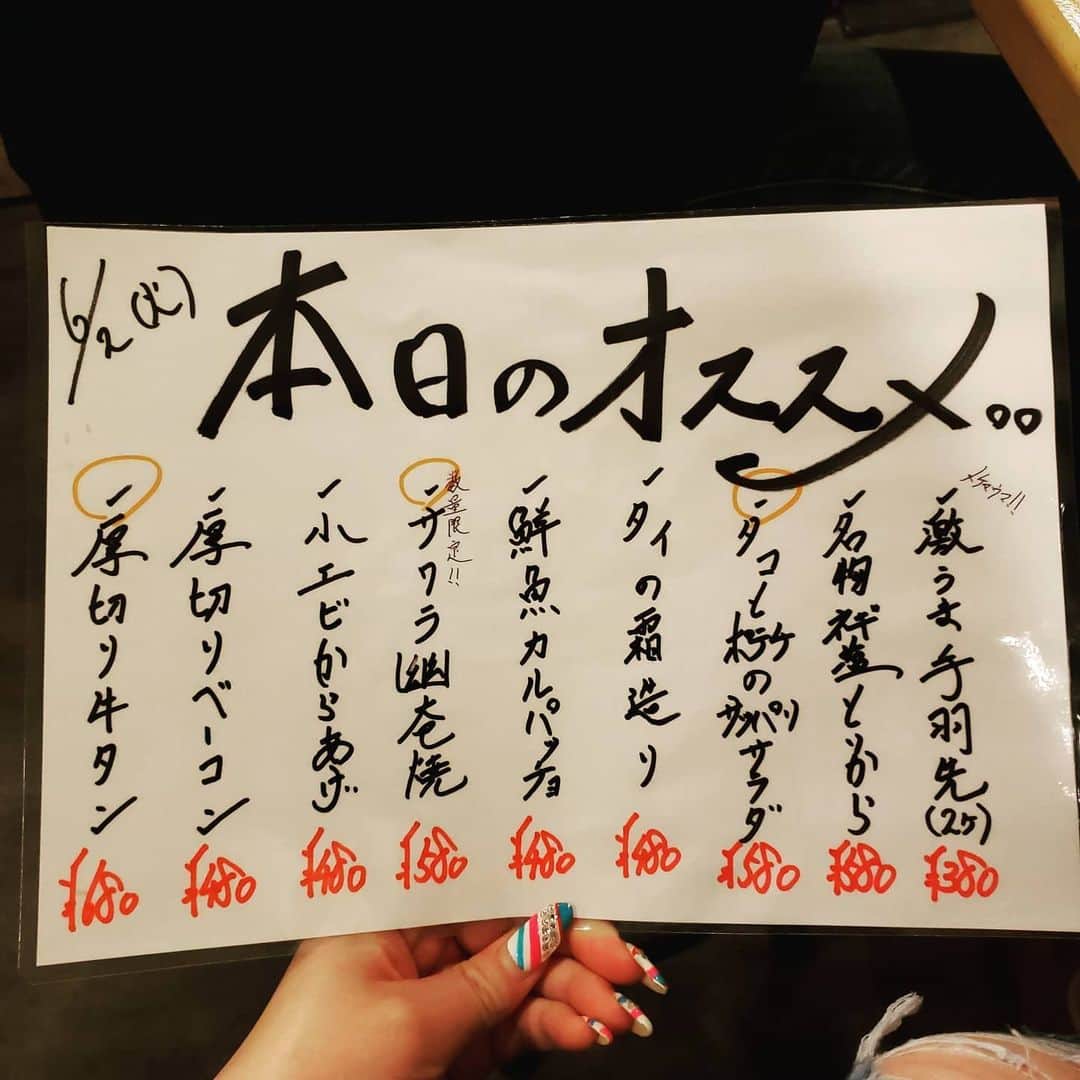 6/2(火)
本日のオススメ。。
メチャウマ!!
一激うま手羽先(2ヶ) ¥380
一名物ネギ塩とりから ¥580
一タコとのサッパリサラダ ¥580
一タイの霜造り ¥480
一鮮魚カルパッチョ ¥480
数量限定!!
一サワラ幽庵焼 ¥580
一小エビからあげ ¥480
一厚切りベーコン ¥480
一厚切り牛タン ¥680